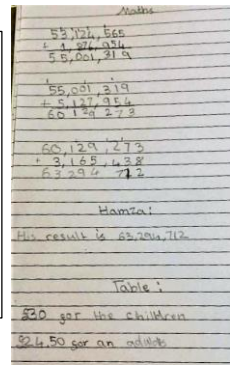 Maths
53,124,565
+ 1,876,954
55,001,319
55,001,319
+ 5,127,954
60 129 273
60,129,273
+ 3,165,438
63 294 712
Hamza:
His result is 63,294,712
Table:
£30 for the children
£24.50 for an adults